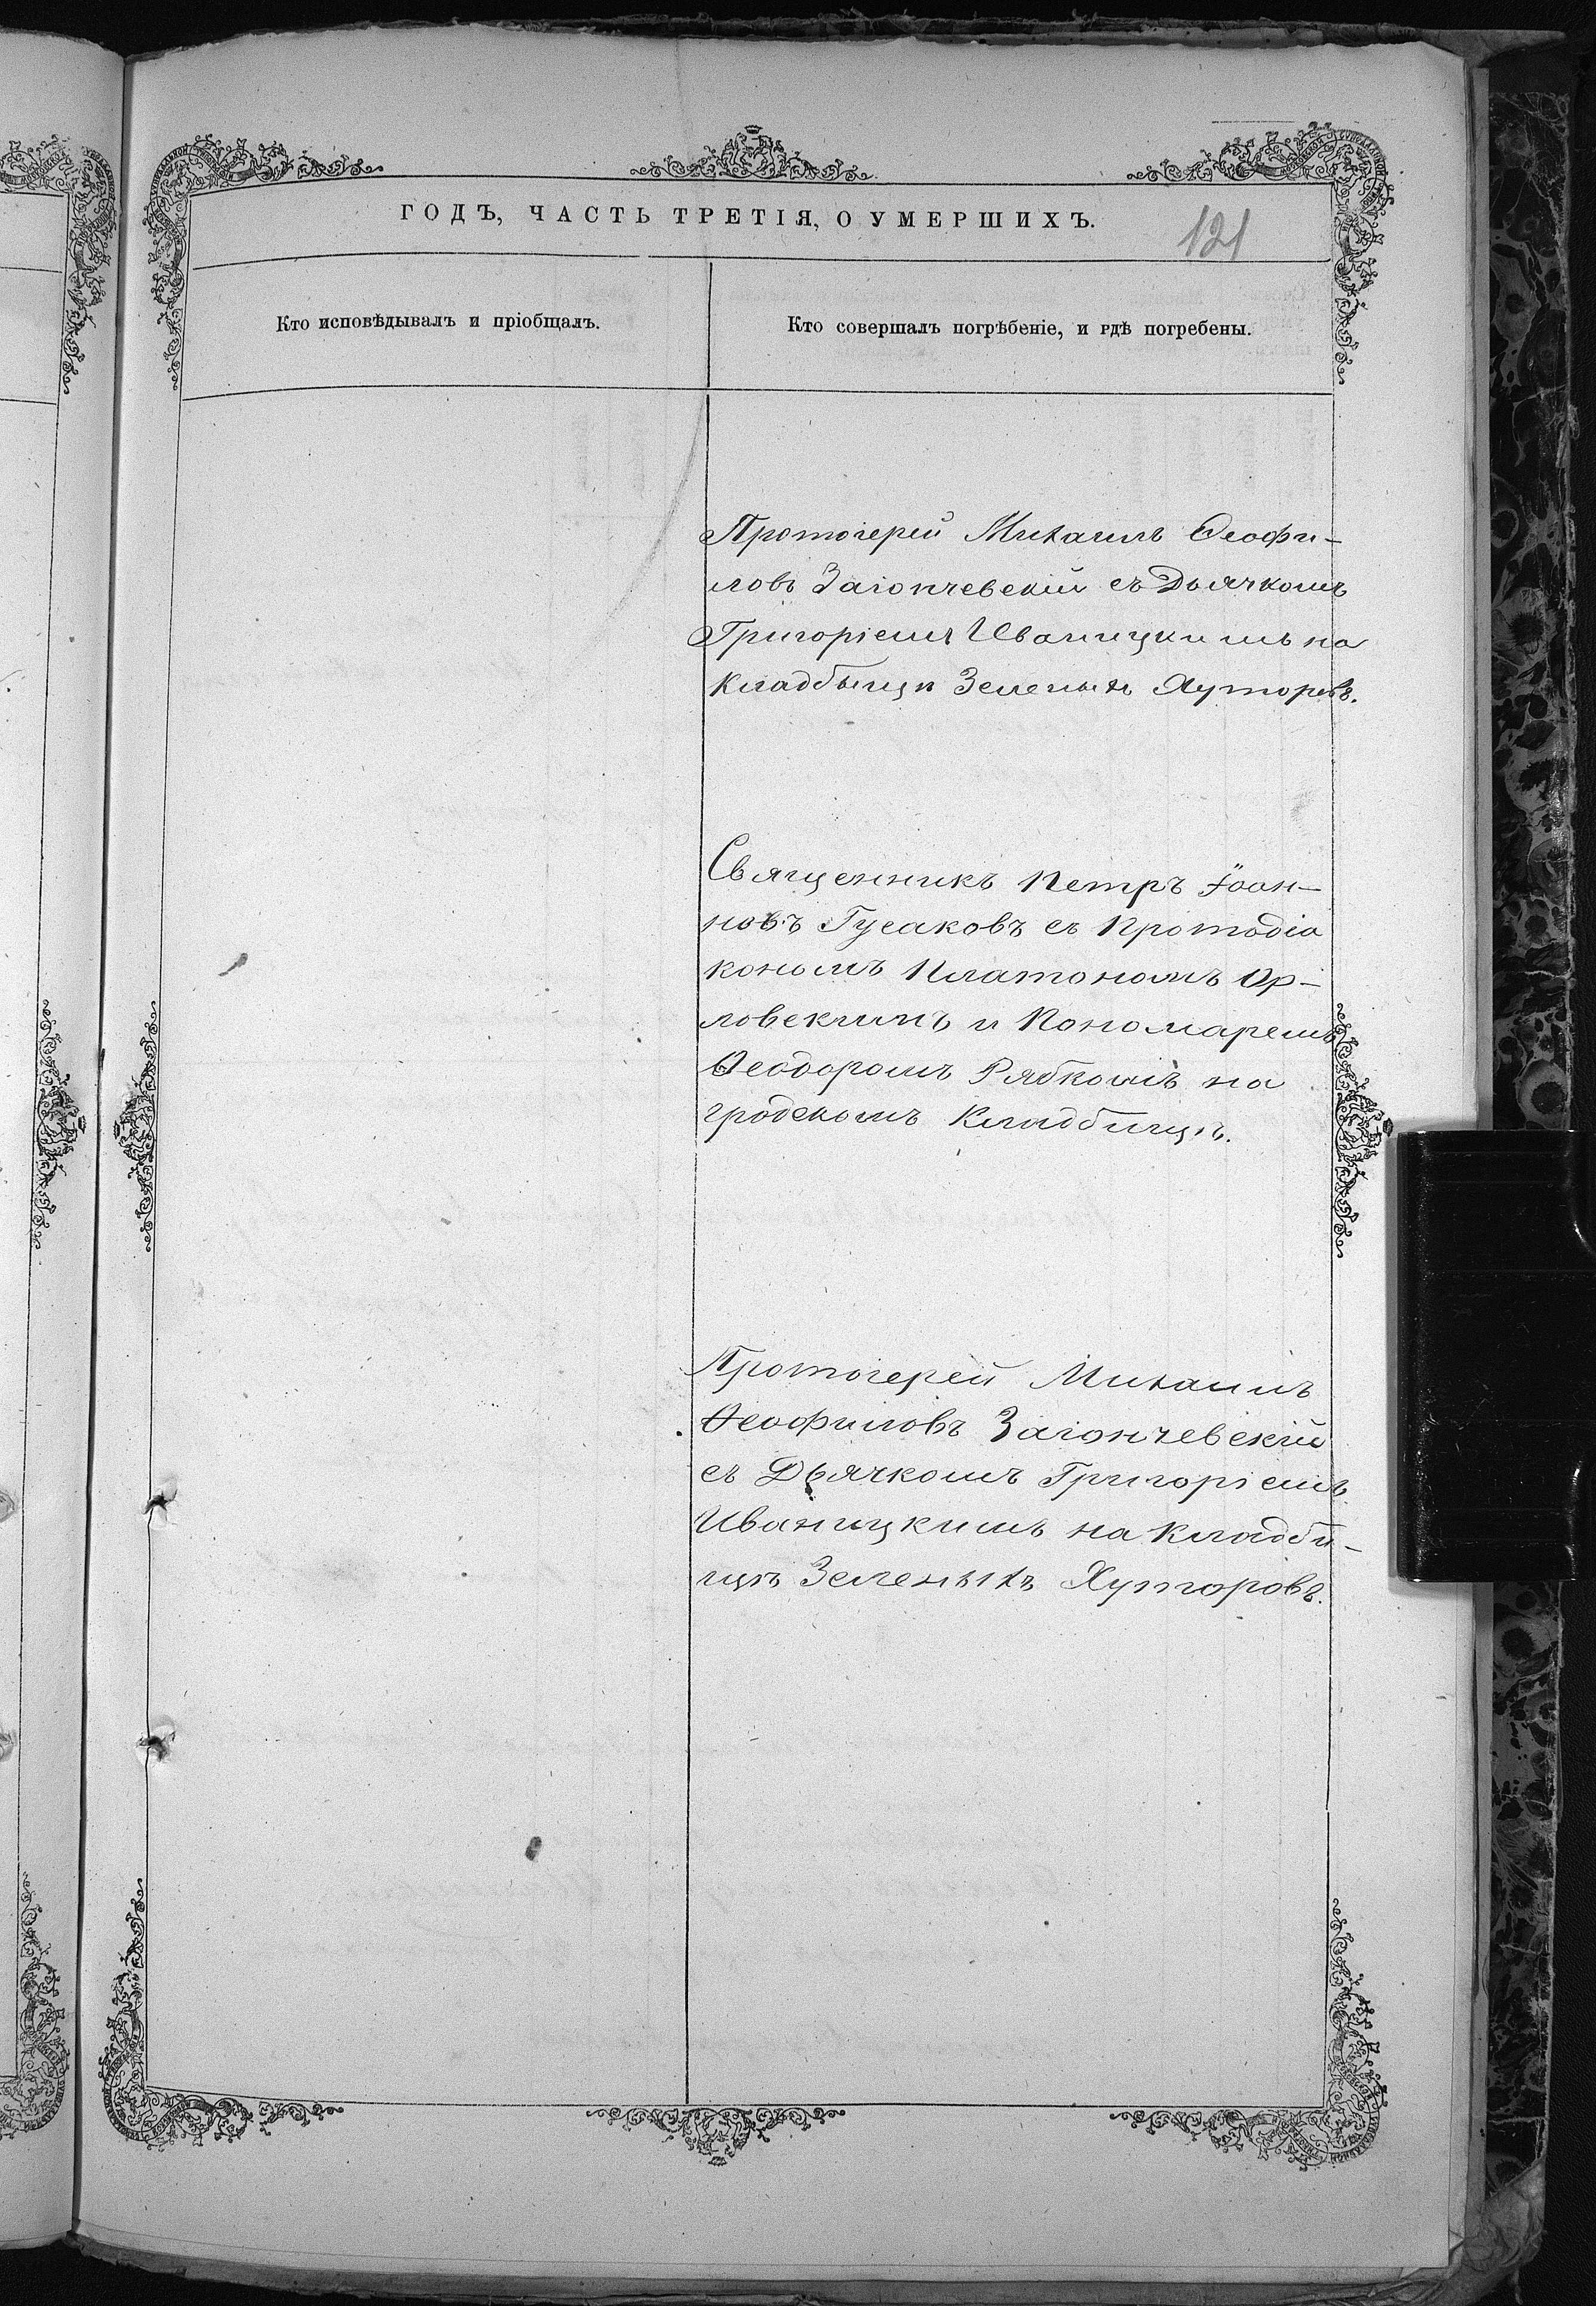 ГОДЪ, ЧАСТЬ ТРЕТІЯ, О УМЕРШИХЪ.
121
Кто исповѣдывалъ и пріобщалъ.
Кто совершалъ погрѣбеніе, и гдѣ погребены.
Протоіерей Михаилъ Ѳеофи-
ловъ Заіончевскій съ Дьячкомъ
Григоріемъ Иваницкимъ на
Кладбищѣ Зеленыхъ Хуторовъ.
Священникъ Петръ Іоан-
новъ Гусаковъ съ Протодіа
кономъ Платономъ Ор-
ловскимъ и Пономаремъ
Ѳеодоромъ Рябкомъ на
гродскомъ Кладбищѣ.
Протоіерей Михаилъ
Ѳеофиловъ Заіончевскій
съ Дьячкомъ Григоріемъ
Иваницкимъ на Кладби-
щѣ Зеленыхъ Хуторовъ.